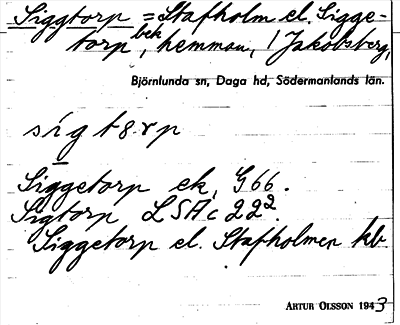 Siggtorp = Stafholm el. Sigge-
torp bek, hemman, / Jakobsberg,
Björnlunda sn, Daga hd, Södermanlands län.
sigt8rp
Siggetorp ek, G66.
Sigtorp LSAc 22².
Siggetorp el. Stafholmen kb
ARTUR OLSSON 1943